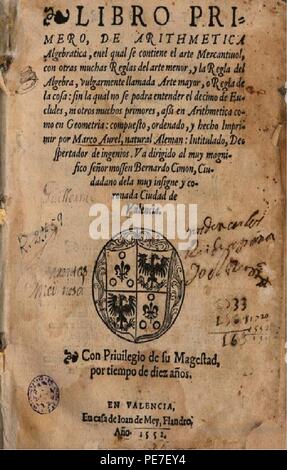 LIBRO PRI-
MERO, DE ARITHMETICA
Algebratica, enel qual se contiene el arte Mercantiuol,
con otras muchas Reglas del arte menor, y la Regla del
Algebra, vulgarmente llamada Arte mayor, o Regla de
la cosa: sin la qual no se podra entender el decimo de Eu-
clides, ni otros muchos primores, assi en Arithmetica co-
mo en Geometria: compuesto, ordenado, y hecho Impri-
mir por Marco Aurel, natural Aleman: Intitulado, Des
pertador de ingenios. Va dirigido al muy magni-
fico señor mossen Bernardo Cimon, Ciu-
dadano dela muy insigne y co-
ronada Ciudad de
Valencia.
Con Priuilegio de su Magestad,
por tiempo de diez años.
EN VALENCIA,
En casa de Ioan de Mey, Flandro,
Año. 1552.
alamy
Image ID: PE7EY4
www.alamy.com